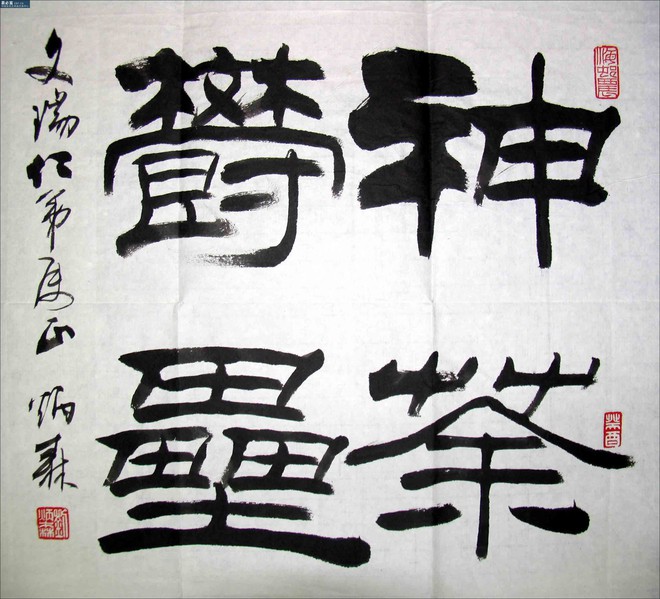 神荼
欝壘
文瑞仁弟属正 炳森